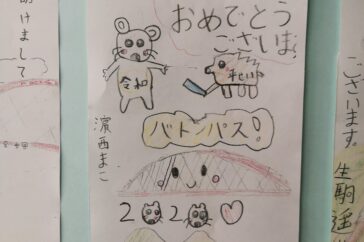 明けまして
おめでとう
ございま
令和
平成
バトンパス!
濱西まこ
2020
ざいます。
生駒遥